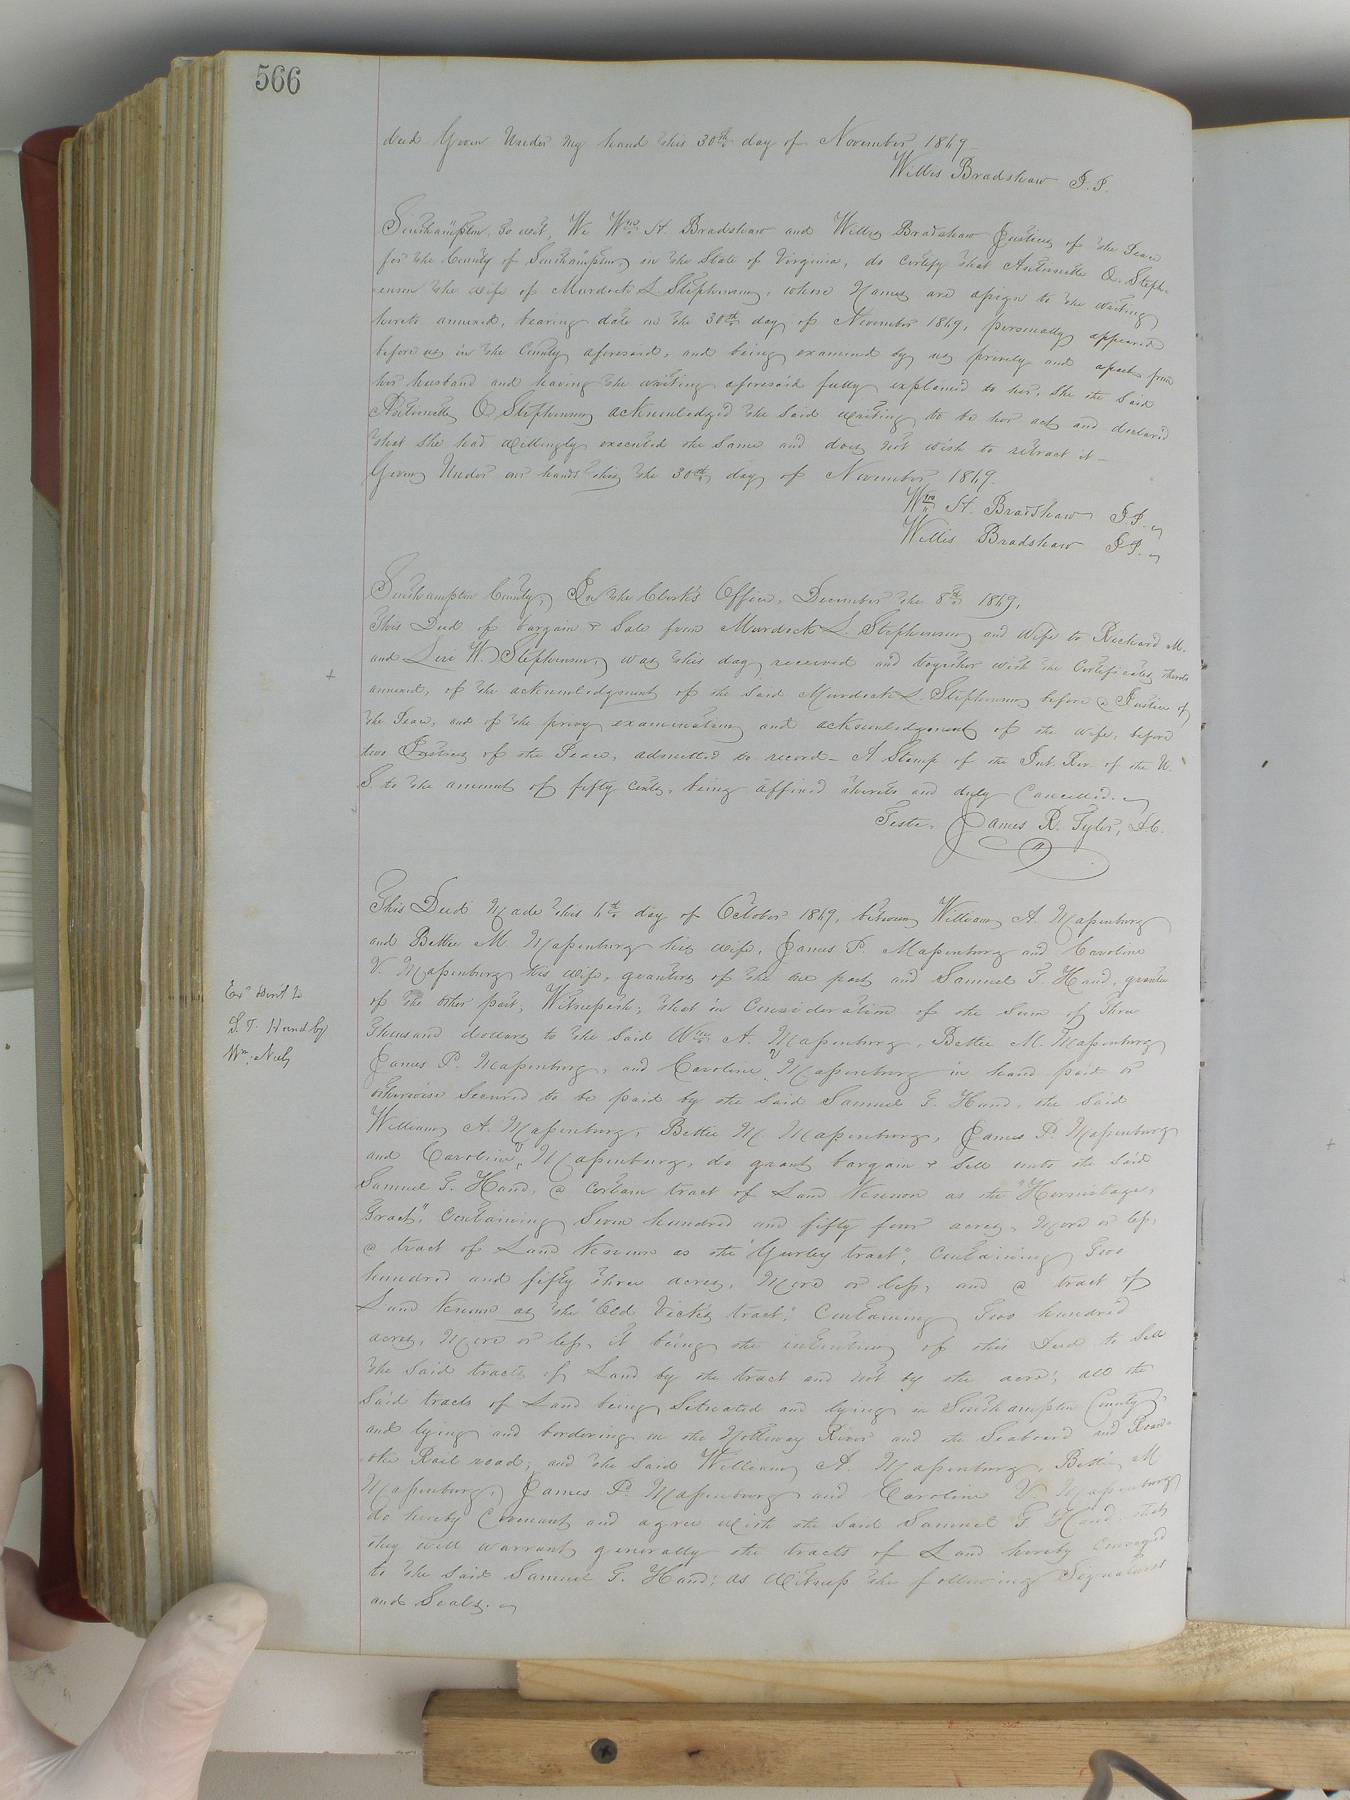 566
deed Given Under My hand this 30th day of November 1869
Willis Bradshaw J.P.
Southampton, to wit, We Wm H. Bradshaw and Willis Bradshaw Justices of the Peace
for the County of Southampton, in the State of Virginia, do certify that Antoinette Q. Steph-
enson the wife of Murdock L. Stephenson, whose Names are assign to the writing
hereto annexed, bearing date on the 30th day of November 1869, personally appeared
before us in the County aforesaid, and being examined by us privily and apart from
her husband and having the writing aforesaid fully explained to her, she the said
Antoinette Q Stephenson acknowledged the said writing to be her act and declared
that she had willingly executed the same and does not wish to retract it-
Given Under our hands this the 30th day of November 1869.
Wm H. Bradshaw J.P.
Willis Bradshaw J.P.
Southampton County, In the Clerk's Office, December the 8th 1869.
This Deed of bargain & Sale from Murdock L. Stephenson and Wife to Richard M.
and Levi W. Stephenson, was this day received and together with the Certificates thereto
annexed, of the acknowledgment of the said Murdock L. Stephenson before a Justice of
the Peace, and of the privy examination and acknowledgment of the wife, before
two Justices of the Peace, admitted to record- A Stamp of the Int. Rev. of the U.
S. to the amount of fifty cents, being affixed thereto and duly Cancelled.
Teste, James R. Tyler, D.C.
This Deed Made this 6th day of October 1869, between William A. Massenburg
and Bettie M. Massenburg his wife, James P. Massenburg and Caroline
V. Massenburg his wife, grantors of the one part and Samuel T. Hand, grantee
of the other part, Witnesseth; that in Consideration of the Sum of Three
Thousand dollars to the said Wm A. Massenburg, Bettie M. Massenburg
James P. Massenburg, and Caroline V Massenburg in hand paid or
otherwise secured to be paid by the said Samuel T. Hand, the said
William A. Massenburg, Bettie M. Massenburg, James P. Massenburg
and Caroline V. Massenburg, do grant bargain & Sell unto the said
Samuel T. Hand, a certain tract of Land Known as the "Hermitage,
Tract," Containing Seven hundred and fifty four acres, More or less,
a tract of Land Known as the "Gurley tract", Containing Two
hundred and fifty three acres, More or less, and a tract of
Land Known as the "Old Vick's tract," Containing Two hundred
acres, More or less, it being the intention of this Deed to Sell
the said tracts of Land by the tract and not by the acre; all the
said tracts of Land being Situated and lying in Southampton County,
and lying and bordering on the Nottoway River and the Seaboard and Roan-
oke Rail road; and the said William A. Massenburg, Bettie M
Massenburg, James P. Massenburg and Caroline V. Massenburg
do hereby Covenant and agree with the said Samuel T. Hand that
they will warrant generally the tracts of Land hereby Conveyed
to the said Samuel T. Hand; as Witness the following Signatures
and Seals.
Exd Sent to
S. T. Hand by
Wm. Neely